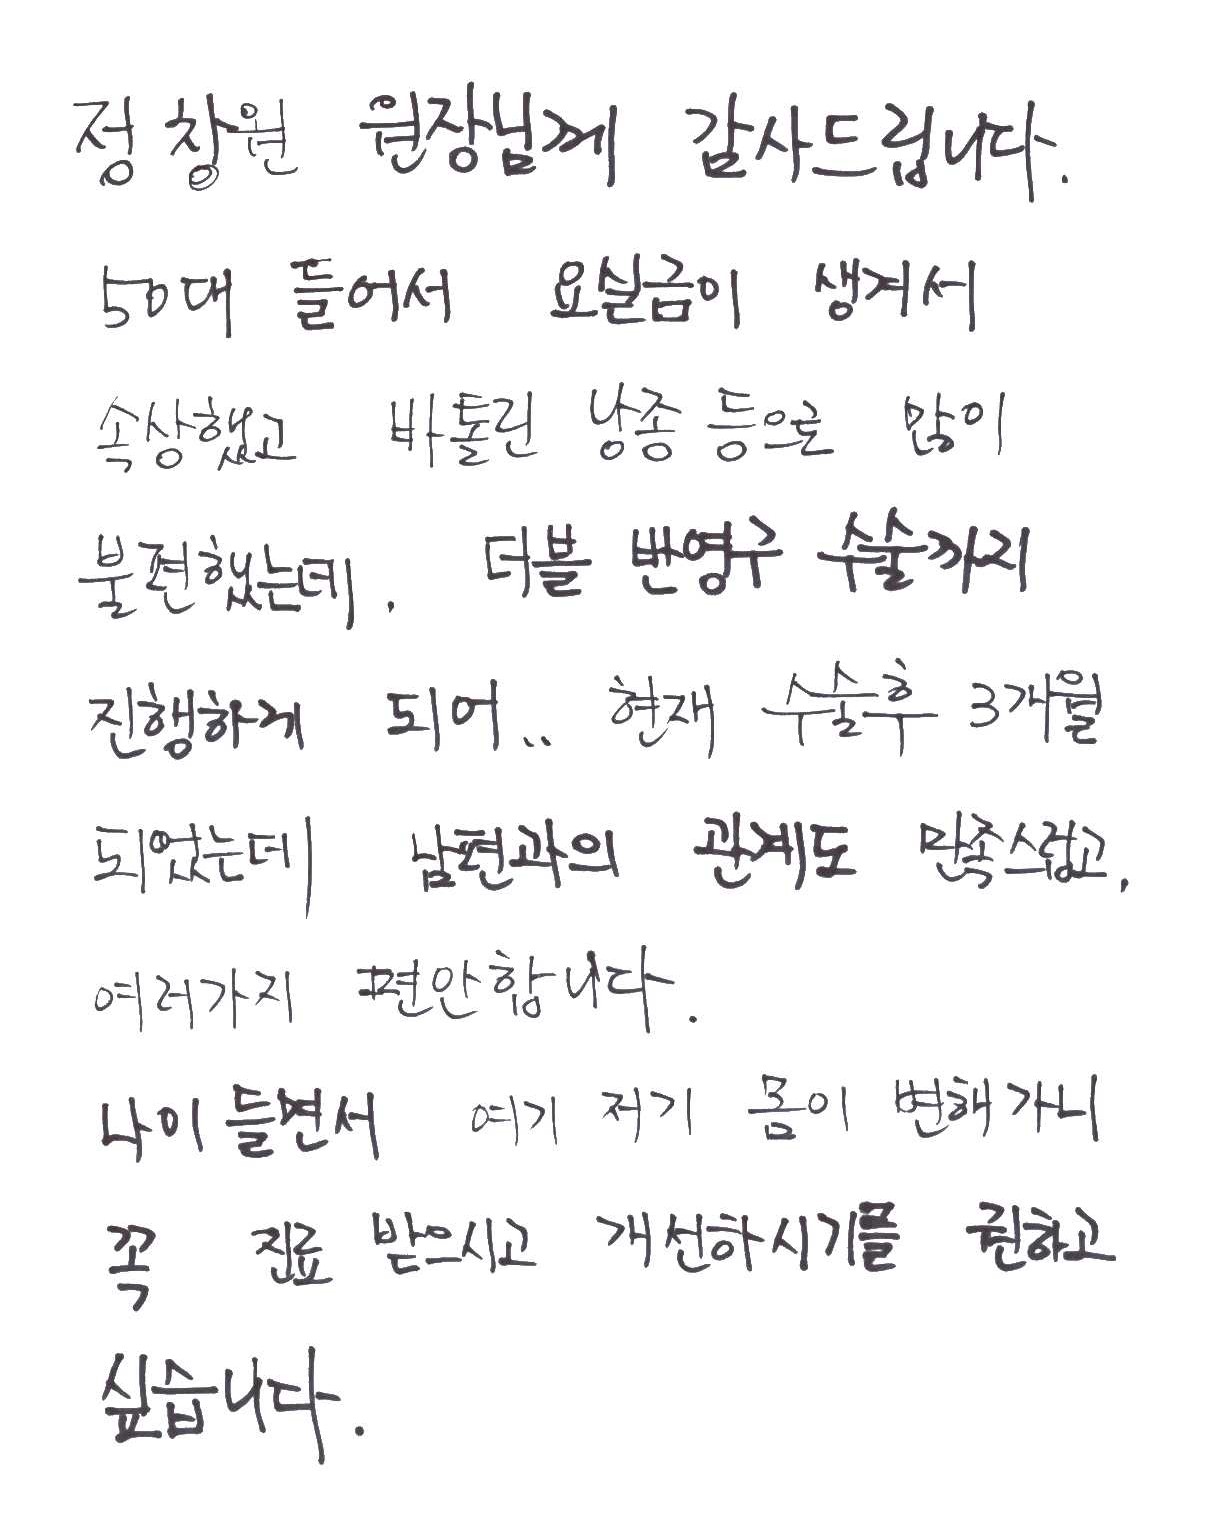 정창원 원장님께 감사드립니다.
50대 들어서 요실금이 생겨서
속상했고 바톨린 낭종 등으로 많이
불편했는데. 더블 반영구 수술까지
진행하게 되어.. 현재 수술후 3개월
되었는데 남편과의 관계도 만족스럽고,
여러가지 편안합니다.
나이 들면서 여기 저기 몸이 변해가니
꼭 진료 받으시고 개선하시기를 권하고
싶습니다.